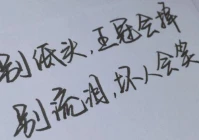 别低头,王冠会掉
别流泪,坏人会笑